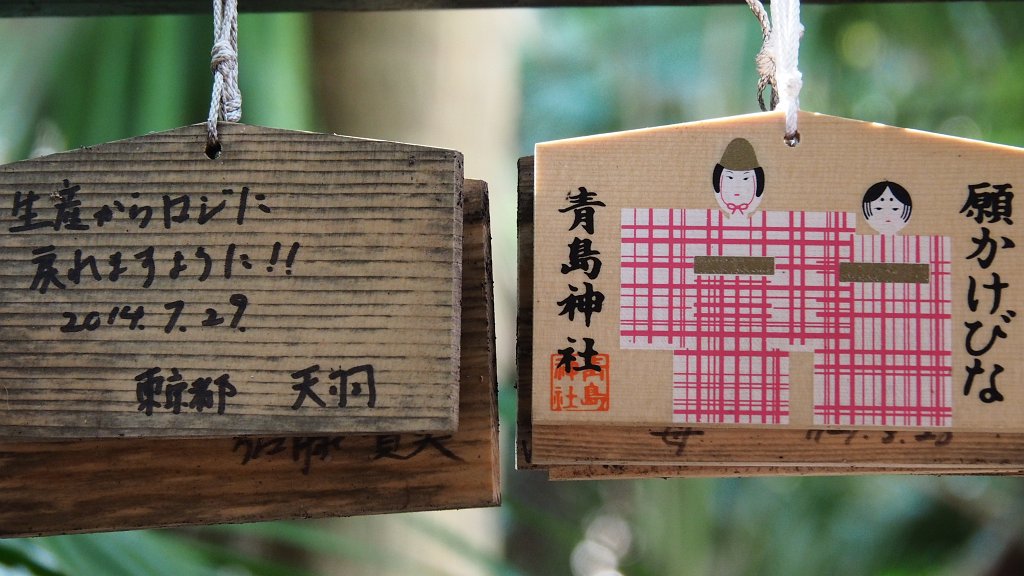 生産からロジに
戻れますように!!
2014.7.29.
東京都 天羽
青島神社
青島
神社
願かけびな